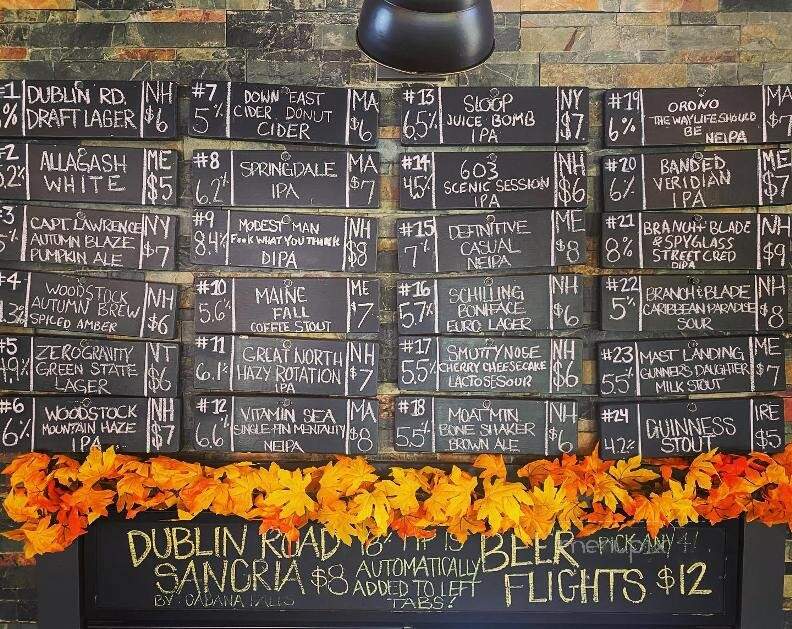 #1 DUBLIN RD. NH
% DRAFT LAGER $6
#2 ALLAGASH ME
5.2% WHITE $5
#3 CAPT. LAWRENCE NY
AUTUMN BLAZE
PUMPKIN ALE $7
#4 WOODSTOCK NH
AUTUMN BREW
SPICED AMBER $6
#5 ZERO GRAVITY VT
4.9% GREEN STATE $6
LAGER
#6 WOODSTOCK NH
6% MOUNTAIN HAZE $7
IPA
#7 DOWN EAST MA
5% CIDER DONUT $6
CIDER
#8 SPRINGDALE MA
6.2% IPA $7
#9 MODEST MAN NH
8.4% F**K WHAT YOU THINK $8
DIPA
#10 MAINE ME
5.6% FALL $7
COFFEE STOUT
#11 GREAT NORTH NH
6.1% HAZY ROTATION $7
IPA
#12 VITAMIN SEA MA
6.6% SINGLE-FIN MENTALITY $8
NEIPA
#13 SLOOP NY
6.5% JUICE BOMB $7
IPA
#14 603 NH
4.5% SCENIC SESSION $6
IPA
#15 DEFINITIVE ME
7% CASUAL $8
NEIPA
#16 SCHILLING NH
5.7% BONIFACE $6
EURO LAGER
#17 SMUTTYNOSE NH
5.5% CHERRY CHEESECAKE $6
LACTOSE SOUR
#18 MOAT MTN NH
5.5% BONE SHAKER $6
BROWN ALE
#19 ORONO MA
6% THE WAY LIFE SHOULD $7
BE NEIPA
#20 BANDED ME
6% VERIDIAN $7
IPA
#21 BRANCH & BLADE NH
8% & SPYGLASS $9
STREET CRED
DIPA
#22 BRANCH & BLADE NH
5% CARIBBEAN PARADISE $8
SOUR
#23 MAST LANDING ME
5.5% GUNNER'S DAUGHTER $7
MILK STOUT
#24 GUINNESS IRE
4.2% STOUT $5
DUBLIN ROAD
SANGRIA $8
18% TIP IS
AUTOMATICALLY
ADDED TO LEFT
TABS!
BEER PICK ANY 4!
FLIGHTS $12